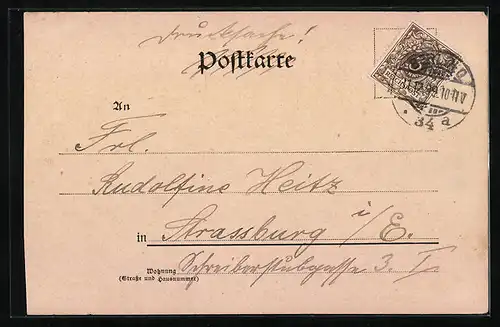 Drucksache!
Postkarte
3
31.12.99. 10-11V
* 34 a
An
Frl.
Rudolfine Heitz
in Strassburg i/E.
Wohnung
(Straße und Hausnummer)
Schreiberstubgasse 3. I.